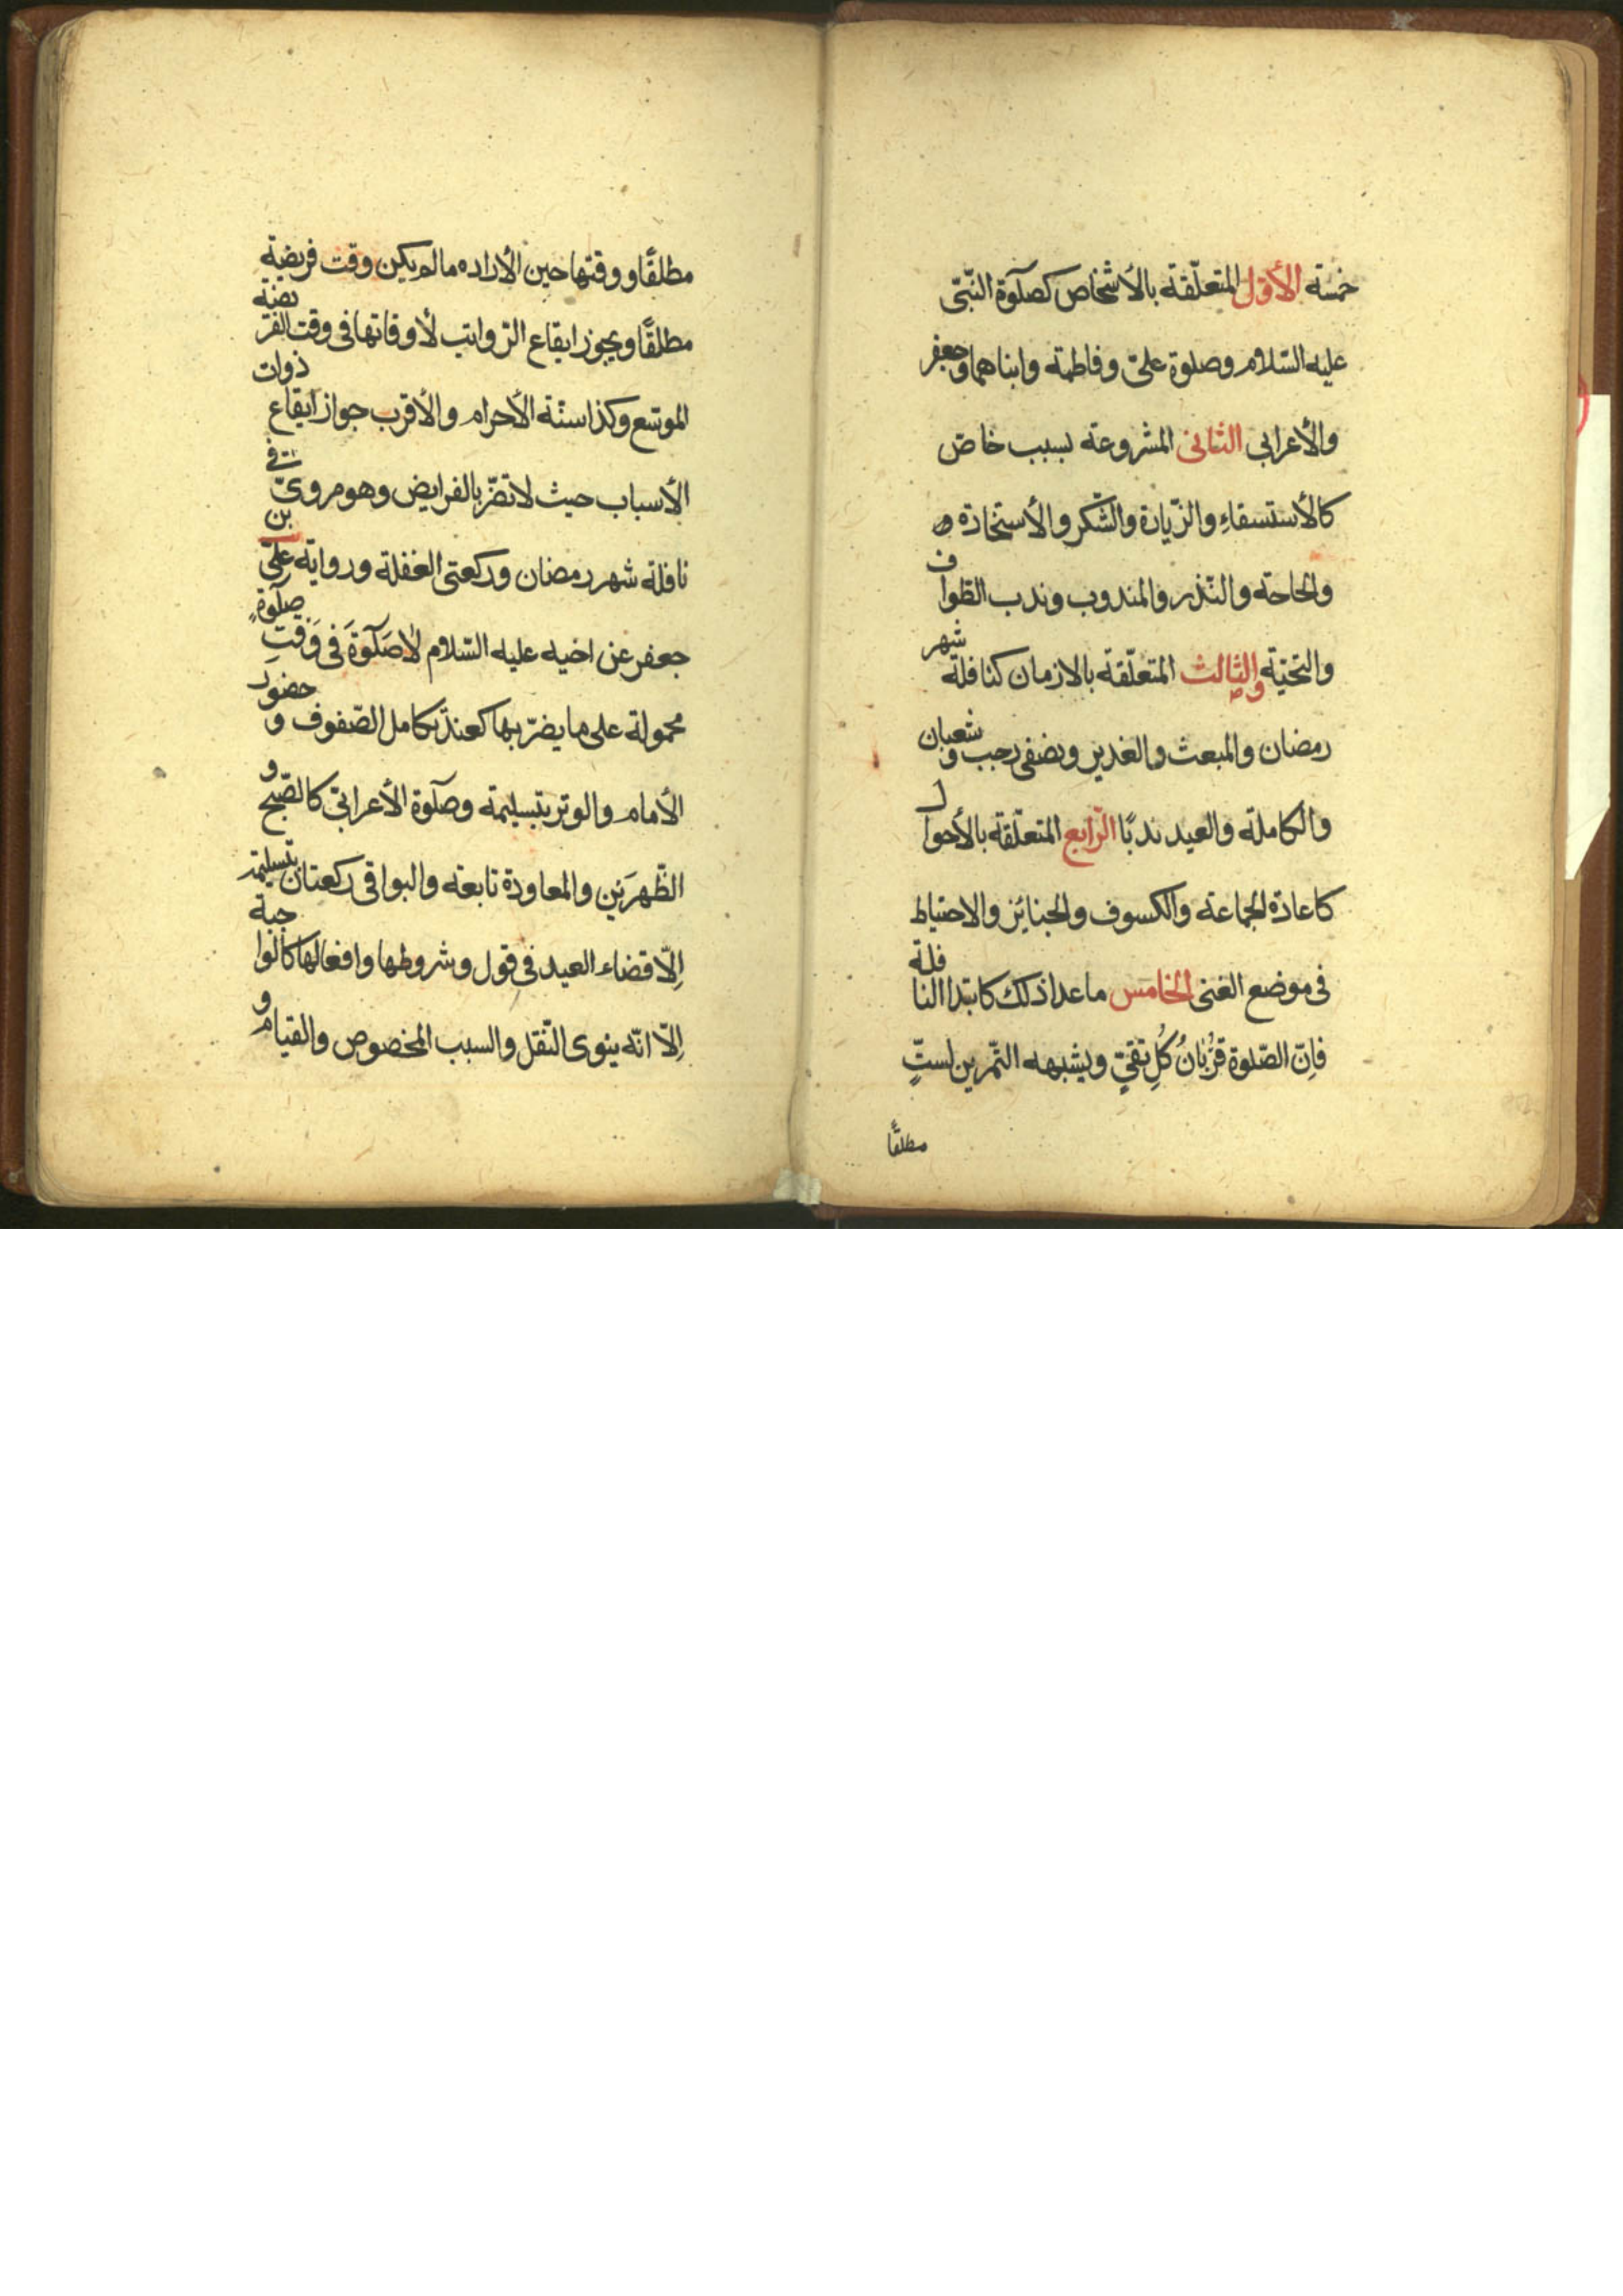 خمسة الأوّل المتعلّقة بالأشخاص كصلوة النّبىّ
عليه السّلام وصلوة علىّ وفاطمة وابناهما وجعفر
والأعرابى الثانى المشروعة بسبب خاصّ
كالأستسقاءِ والزّيارة والشّكر والأستخارة
والحاجة والنّذر والمندوب وندب الطّواف
والتحيّة والثالث المتعلّقة بالازمان كنافلة شهر
رمضان والمبعث والغدير ونصفى رجب وشعبان
والكاملة والعيد ندبًا الرّابع المتعلّقة بالأحوال
كاعادة الجماعة والكسوف والجنائز والاحتياط
فى موضع الغنى الخامس ماعدا ذلك كابتدا النافلة
فاِنّ الصّلوة قُرْبانُ كُلِ تقىّ ويشبهه التّمرين لستٍّ
مطلقًا
مطلقًا ووقتها حين الأراده مالم يكن وقت فريضة
مطلقًا ويجوز ايقاع الرّواتب لأوقاتها فى وقت الفريضة
الموسّع وكذا سنّة الأحرام والأقرب جواز ايقاع ذوات
الأسباب حيث لاتضرّ بالفرايض وهو مروىّ فى
نافلة شهر رمضان وركعتى الغفلة ورواية علىّ بن
جعفر عن اخيه عليه السّلام لاصَلوةَ فى وَقتِ صلوةٍ
محمولة على مايضرّ بها كعند تكامل الصّفوف و حضور
الأمام والوتر بتسليمة وصلوة الأعرابىّ كالصّبح و
الظّهرَين والمعاودة تابعة والبواقى ركعتان بتسليمة
اِلّا قضاء العيد فى قول وشروطها وافعالها كالواجبة
اِلّا انّه ينوى النّفل والسبب المخصوص والقيام و